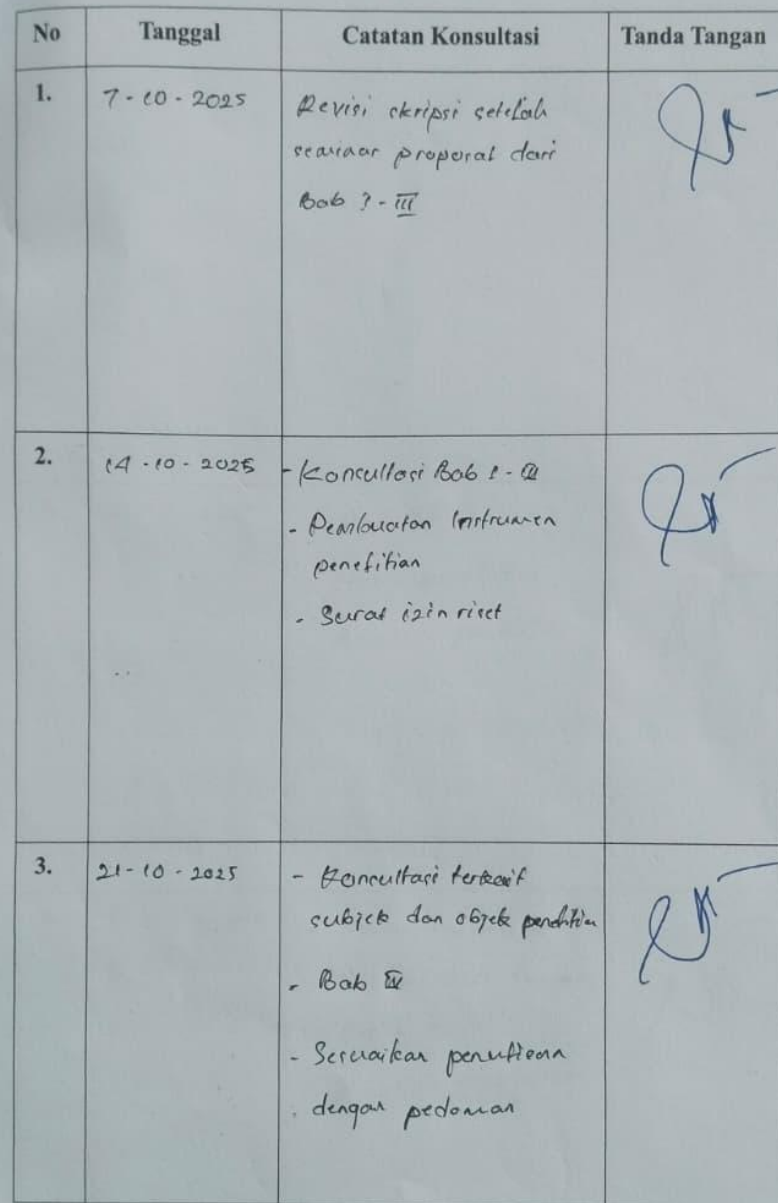 No Tanggal Catatan Konsultasi Tanda Tangan
1. 7-10-2025 Revisi skripsi setelah
seminar proposal dari
Bab I-III
2. 14-10-2025 - Konsultasi Bab I-III
- Pembuatan Instrumen
penelitian
- Surat izin riset
3. 21-10-2025 - Konsultasi terkait
subjek dan objek penelitian
- Bab IV
- Sesuaikan penulisan
dengan pedoman